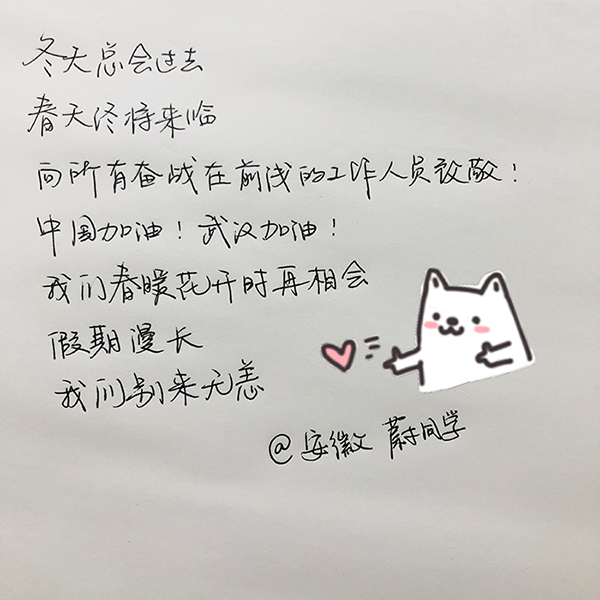 冬天总会过去
春天终将来临
向所有奋战在前线的工作人员致敬！
中国加油！武汉加油！
我们春暖花开时再相会
假期漫长
我们别来无恙
@安徽 蔚同学